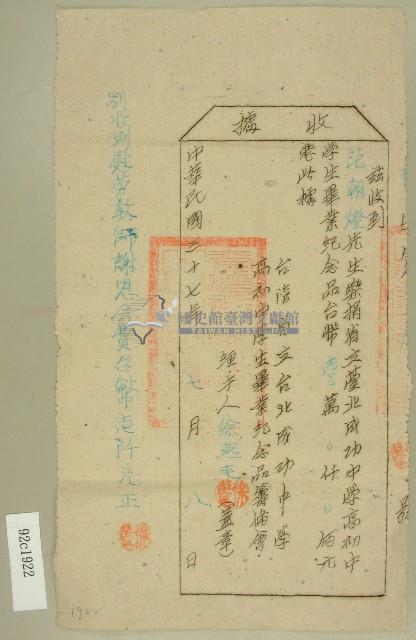 收據
茲收到
范朝燈先生樂捐省立臺北成功中學高初中
學生畢業紀念品台幣壹萬〇仟〇佰元
悉此據
台灣省立台北成功中學
高初中學生畢業紀念品籌備會
經手人徐燕生(蓋章)
中華民國三十七年七月八日
別收到敬當教師謝恩會費台幣壱阡元正
國史館臺灣文獻館
TAIWAN HISTORICA
號
92c1922
1922